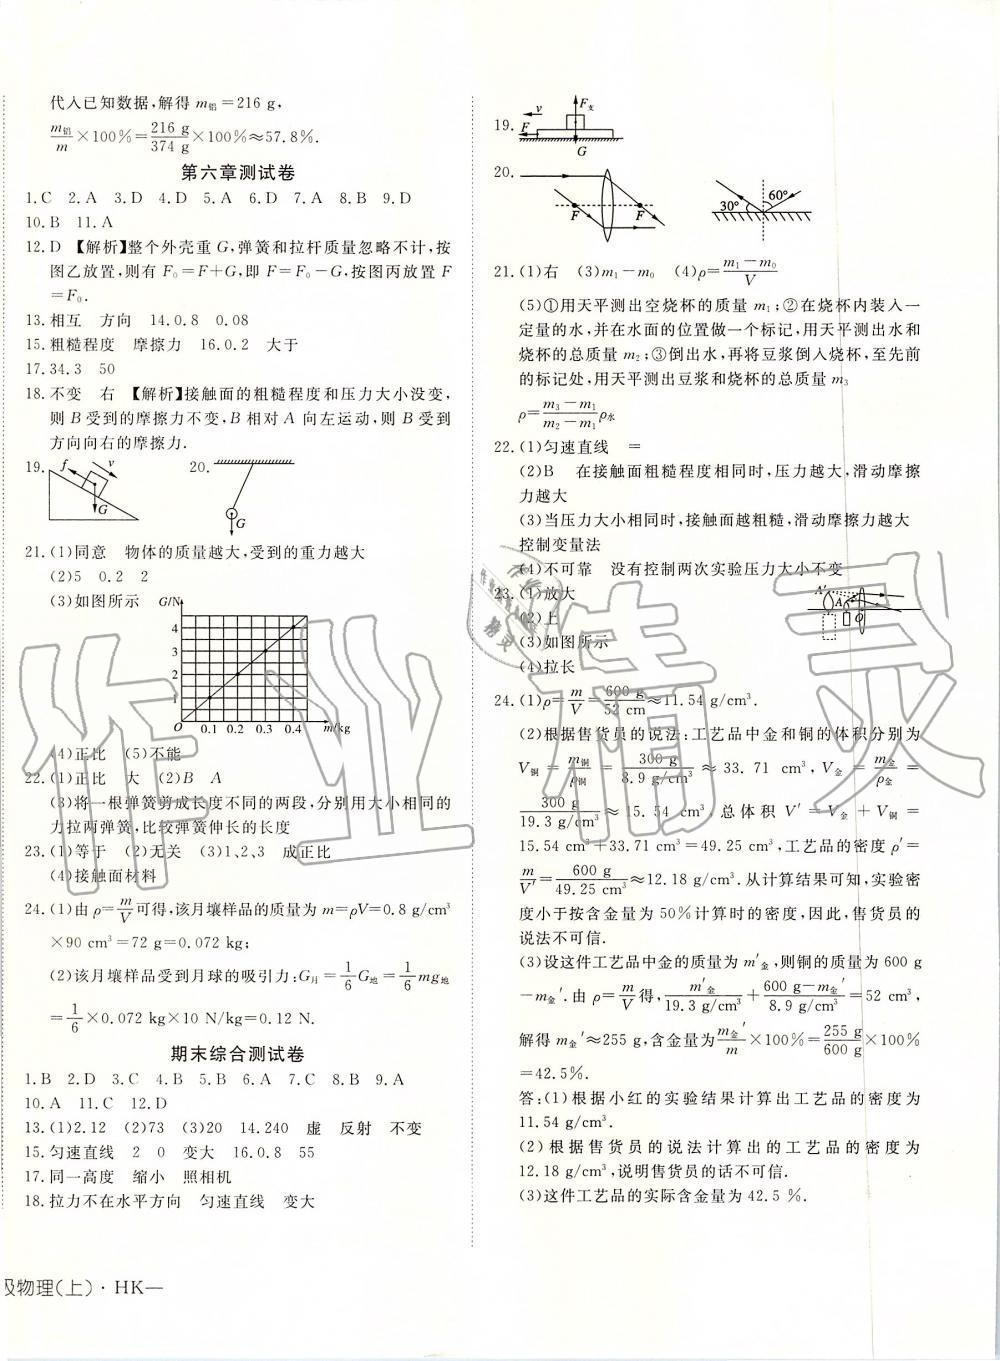 代入已知数据,解得 m铝=216 g,
m铝/m×100%=216 g/374 g×100%≈57.8%.
第六章测试卷
1.C 2.A 3.D 4.D 5.A 6.D 7.A 8.B 9.D
10.B 11.A
12.D 【解析】整个外壳重 G,弹簧和拉杆质量忽略不计,按
图乙放置,则有 F₀=F+G,即 F=F₀-G,按图丙放置 F
=F₀.
13.相互 方向 14.0.8 0.08
15.粗糙程度 摩擦力 16.0.2 大于
17.34.3 50
18.不变 右 【解析】接触面的粗糙程度和压力大小没变,
则 B 受到的摩擦力不变,B 相对 A 向左运动,则 B 受到
方向向右的摩擦力.
19. f v G 20. G
21.(1)同意 物体的质量越大,受到的重力越大
(2)5 0.2 2
(3)如图所示 G/N
4
3
2
1
O 0.1 0.2 0.3 0.4 m/kg
(4)正比 (5)不能
22.(1)正比 大 (2)B A
(3)将一根弹簧剪成长度不同的两段,分别用大小相同的
力拉两弹簧,比较弹簧伸长的长度
23.(1)等于 (2)无关 (3)1、2、3 成正比
(4)接触面材料
24.(1)由 ρ=m/V可得,该月壤样品的质量为 m=ρV=0.8 g/cm³
×90 cm³=72 g=0.072 kg;
(2)该月壤样品受到月球的吸引力:G月=1/6G地=1/6mg地
=1/6×0.072 kg×10 N/kg=0.12 N.
期末综合测试卷
1.B 2.D 3.C 4.B 5.B 6.A 7.C 8.B 9.A
10.A 11.C 12.D
13.(1)2.12 (2)73 (3)20 14.240 虚 反射 不变
15.匀速直线 2 0 变大 16.0.8 55
17.同一高度 缩小 照相机
18.拉力不在水平方向 匀速直线 变大
级物理(上)·HK—
19. v F支 F G
20. F F 30° 60°
21.(1)右 (3)m₁-m₀ (4)ρ=m₁-m₀/V
(5)①用天平测出空烧杯的质量 m₁;②在烧杯内装入一
定量的水,并在水面的位置做一个标记,用天平测出水和
烧杯的总质量 m₂;③倒出水,再将豆浆倒入烧杯,至先前
的标记处,用天平测出豆浆和烧杯的总质量 m₃
ρ=m₃-m₁/m₂-m₁ρ水
22.(1)匀速直线 =
(2)B 在接触面粗糙程度相同时,压力越大,滑动摩擦
力越大
(3)当压力大小相同时,接触面越粗糙,滑动摩擦力越大
控制变量法
(4)不可靠 没有控制两次实验压力大小不变
23.(1)放大 A′ A O
(2)上
(3)如图所示
(4)拉长
24.(1)ρ=m/V=600 g/52 cm≈11.54 g/cm³.
(2)根据售货员的说法:工艺品中金和铜的体积分别为
V铜=m铜/ρ铜=300 g/8.9 g/cm³≈33.71 cm³,V金=m金/ρ金=
300 g/19.3 g/cm³≈15.54 cm³,总体积 V′=V金+V铜=
15.54 cm³+33.71 cm³=49.25 cm³,工艺品的密度 ρ′=
m/V′=600 g/49.25 cm³≈12.18 g/cm³.从计算结果可知,实验密
度小于按含金量为 50%计算时的密度,因此,售货员的
说法不可信.
(3)设这件工艺品中金的质量为 m′金,则铜的质量为 600 g
-m金′.由 ρ=m/V得,m′金/19.3 g/cm³+600 g-m金′/8.9 g/cm³=52 cm³,
解得 m金′≈255 g,含金量为m金′/m×100%=255 g/600 g×100%
=42.5%.
答:(1)根据小红的实验结果计算出工艺品的密度为
11.54 g/cm³.
(2)根据售货员的说法计算出的工艺品的密度为
12.18 g/cm³,说明售货员的话不可信.
(3)这件工艺品的实际含金量为 42.5 %.
作业精灵